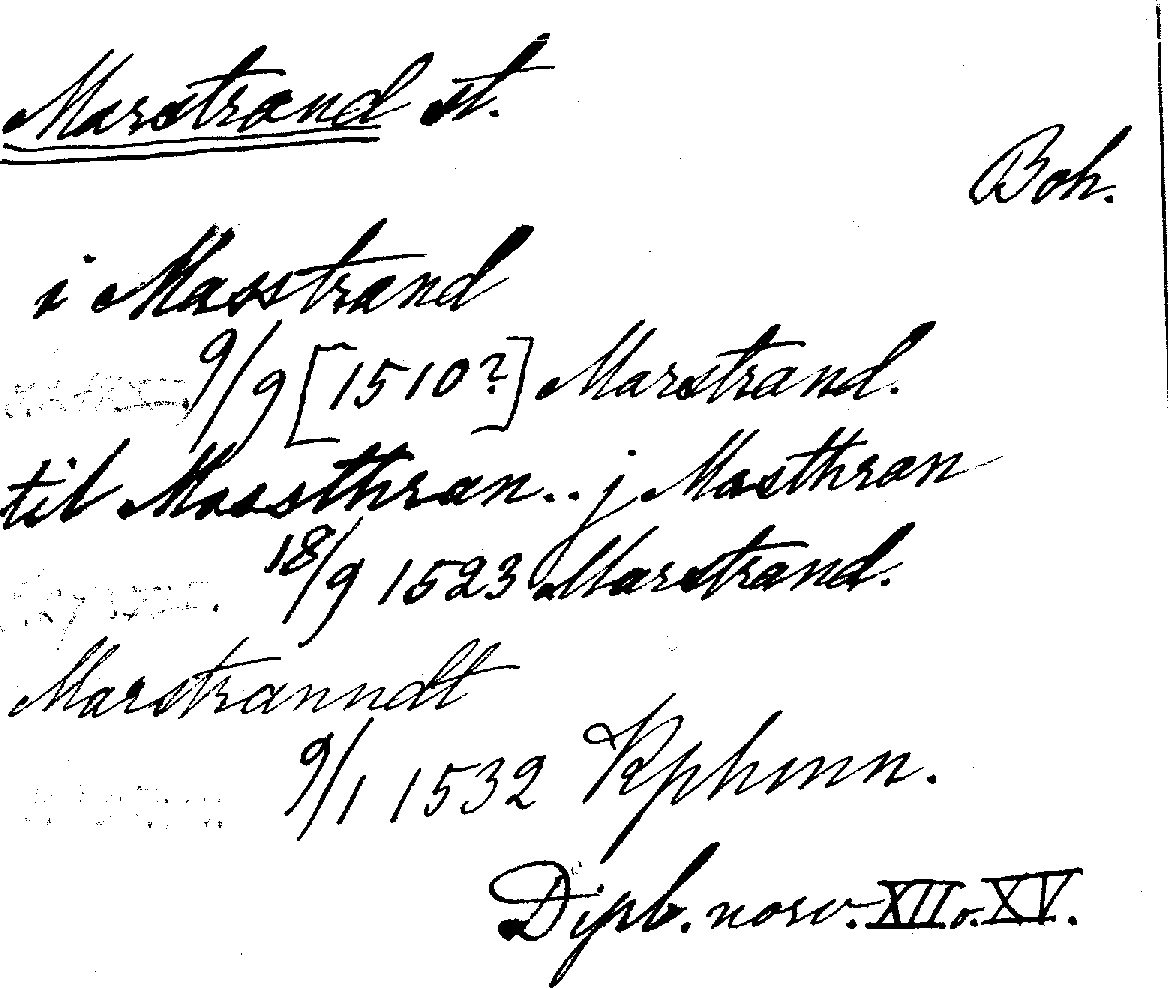 Marstrand st.
Boh.
i Masstrand
9/9 [1510?] Marstrand.
til Massthran.. j Masthran
18/9 1523 Marstrand.
Marstranndt
9/1 1532 Kphmn.
Dipl. norv. XII o. XV.